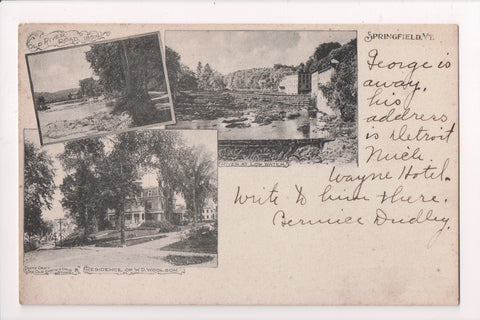 OLD RIVER
ROAD
SPRINGFIELD, VT.
George is
away,
his
address
is Detroit
Mich.
Wayne Hotel.
Write to him there.
Bernice Dudley.
RIVER AT LOW WATER
RESIDENCE OF W.D. WOOLSON